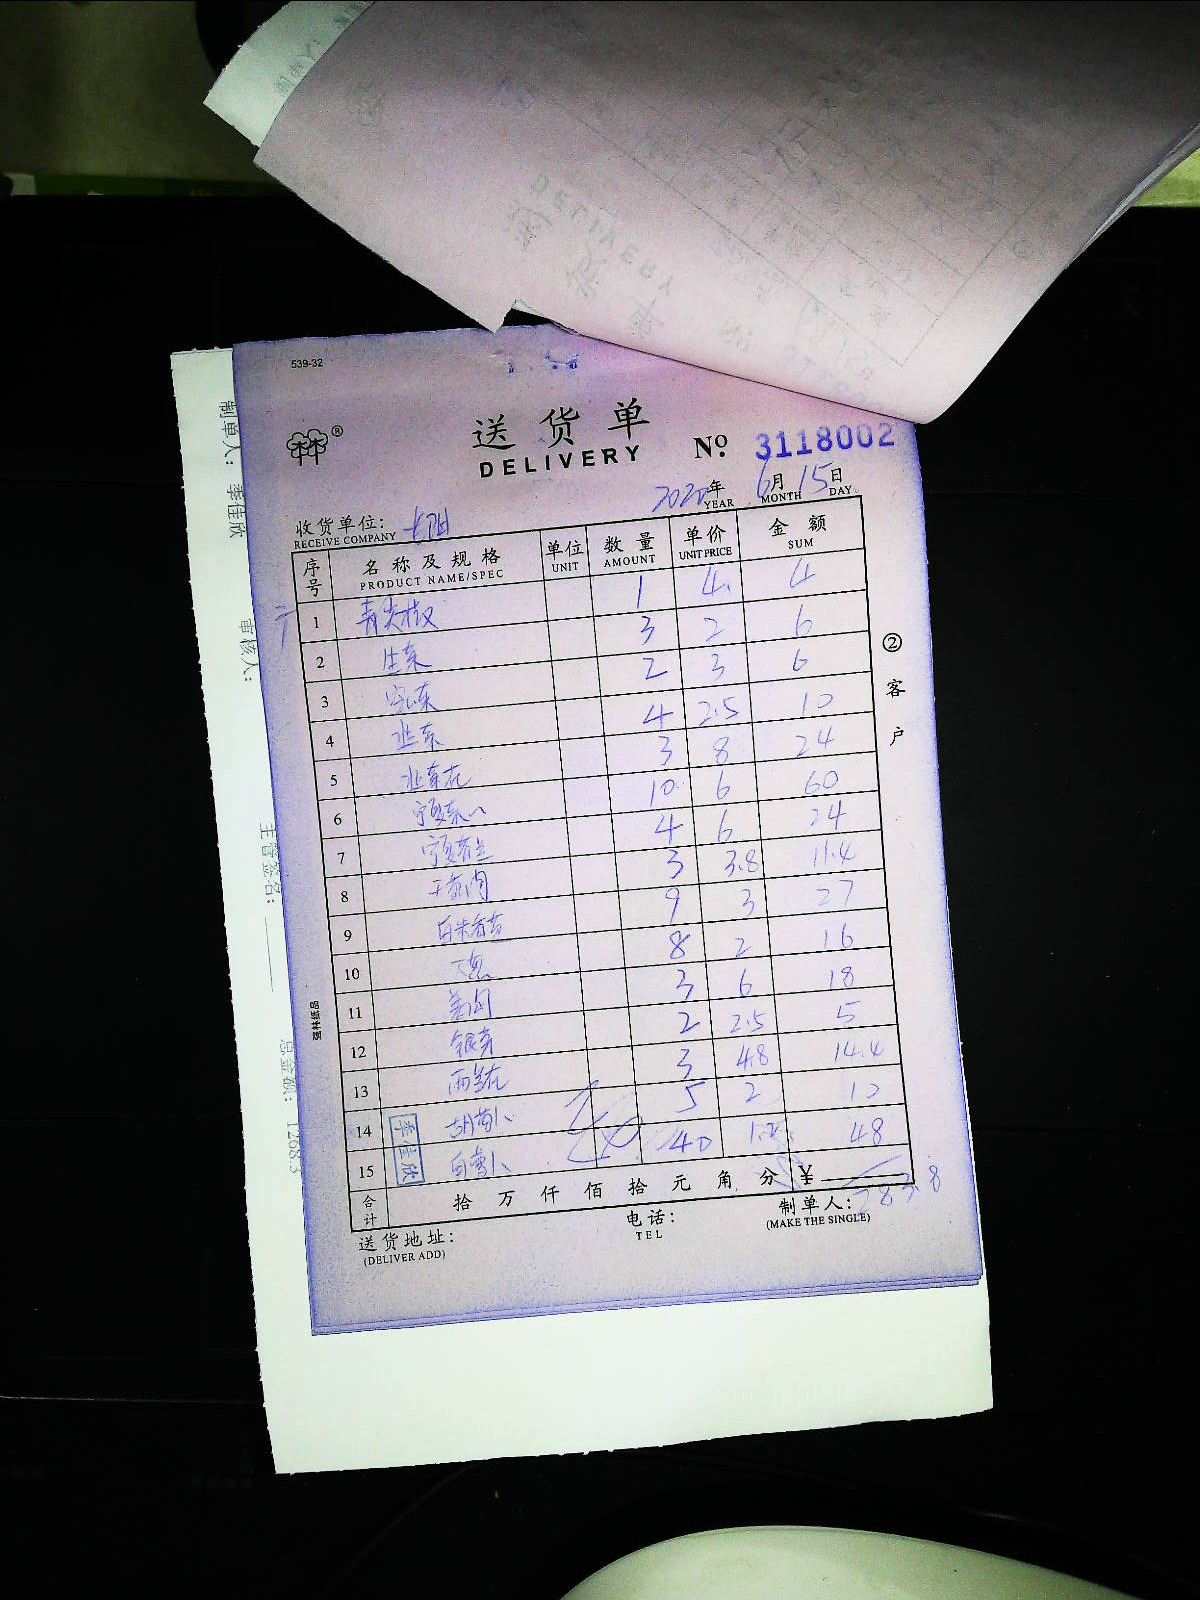 539-32
送货单
DELIVERY
№ 3118002
2020年 6月 15日
YEAR MONTH DAY
收货单位:
RECEIVE COMPANY
序号 名称及规格 单位 数量 单价 金额
PRODUCT NAME/SPEC UNIT AMOUNT UNIT PRICE SUM
1 青尖椒 1 4 4
2 生菜 3 2 6
3 2 3 6
4 韭菜 4 2.5 10
5 韭菜花 3 8 24
6 宁夏菜心 10 6 60
7 宁夏芥兰 4 6 24
8 3 3.8 11.4
9 9 3 27
10 8 2 16
11 3 6 18
12 银芽 2 2.5 5
13 西兰花 3 4.8 14.4
14 胡萝卜 5 2 10
15 白萝卜 40 1.2 48
李佳欣
合计 拾 万 仟 佰 拾 元 角 分 ¥ 283.8
送货地址:
(DELIVER ADD)
电话:
TEL
制单人:
(MAKE THE SINGLE)
②客户
强林纸品
制单人: 李佳欣
审核人:
主管签名:
总金额: 1268.3